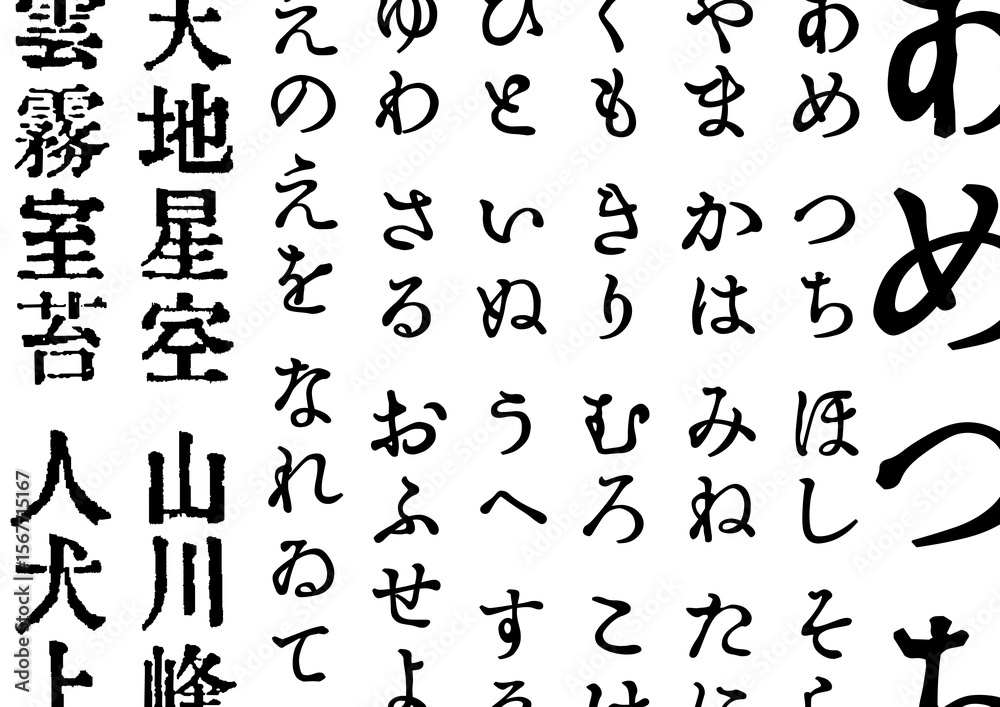 あめつち
あめ つち ほし そら
やま かは みね たに
くも きり むろ こけ
ひと いぬ うへ する
ゆわ さる おふせよ
えのえを なれゐて
天地星空 山川峰
雲霧室苔 人犬上
Adobe Stock | #1567715167